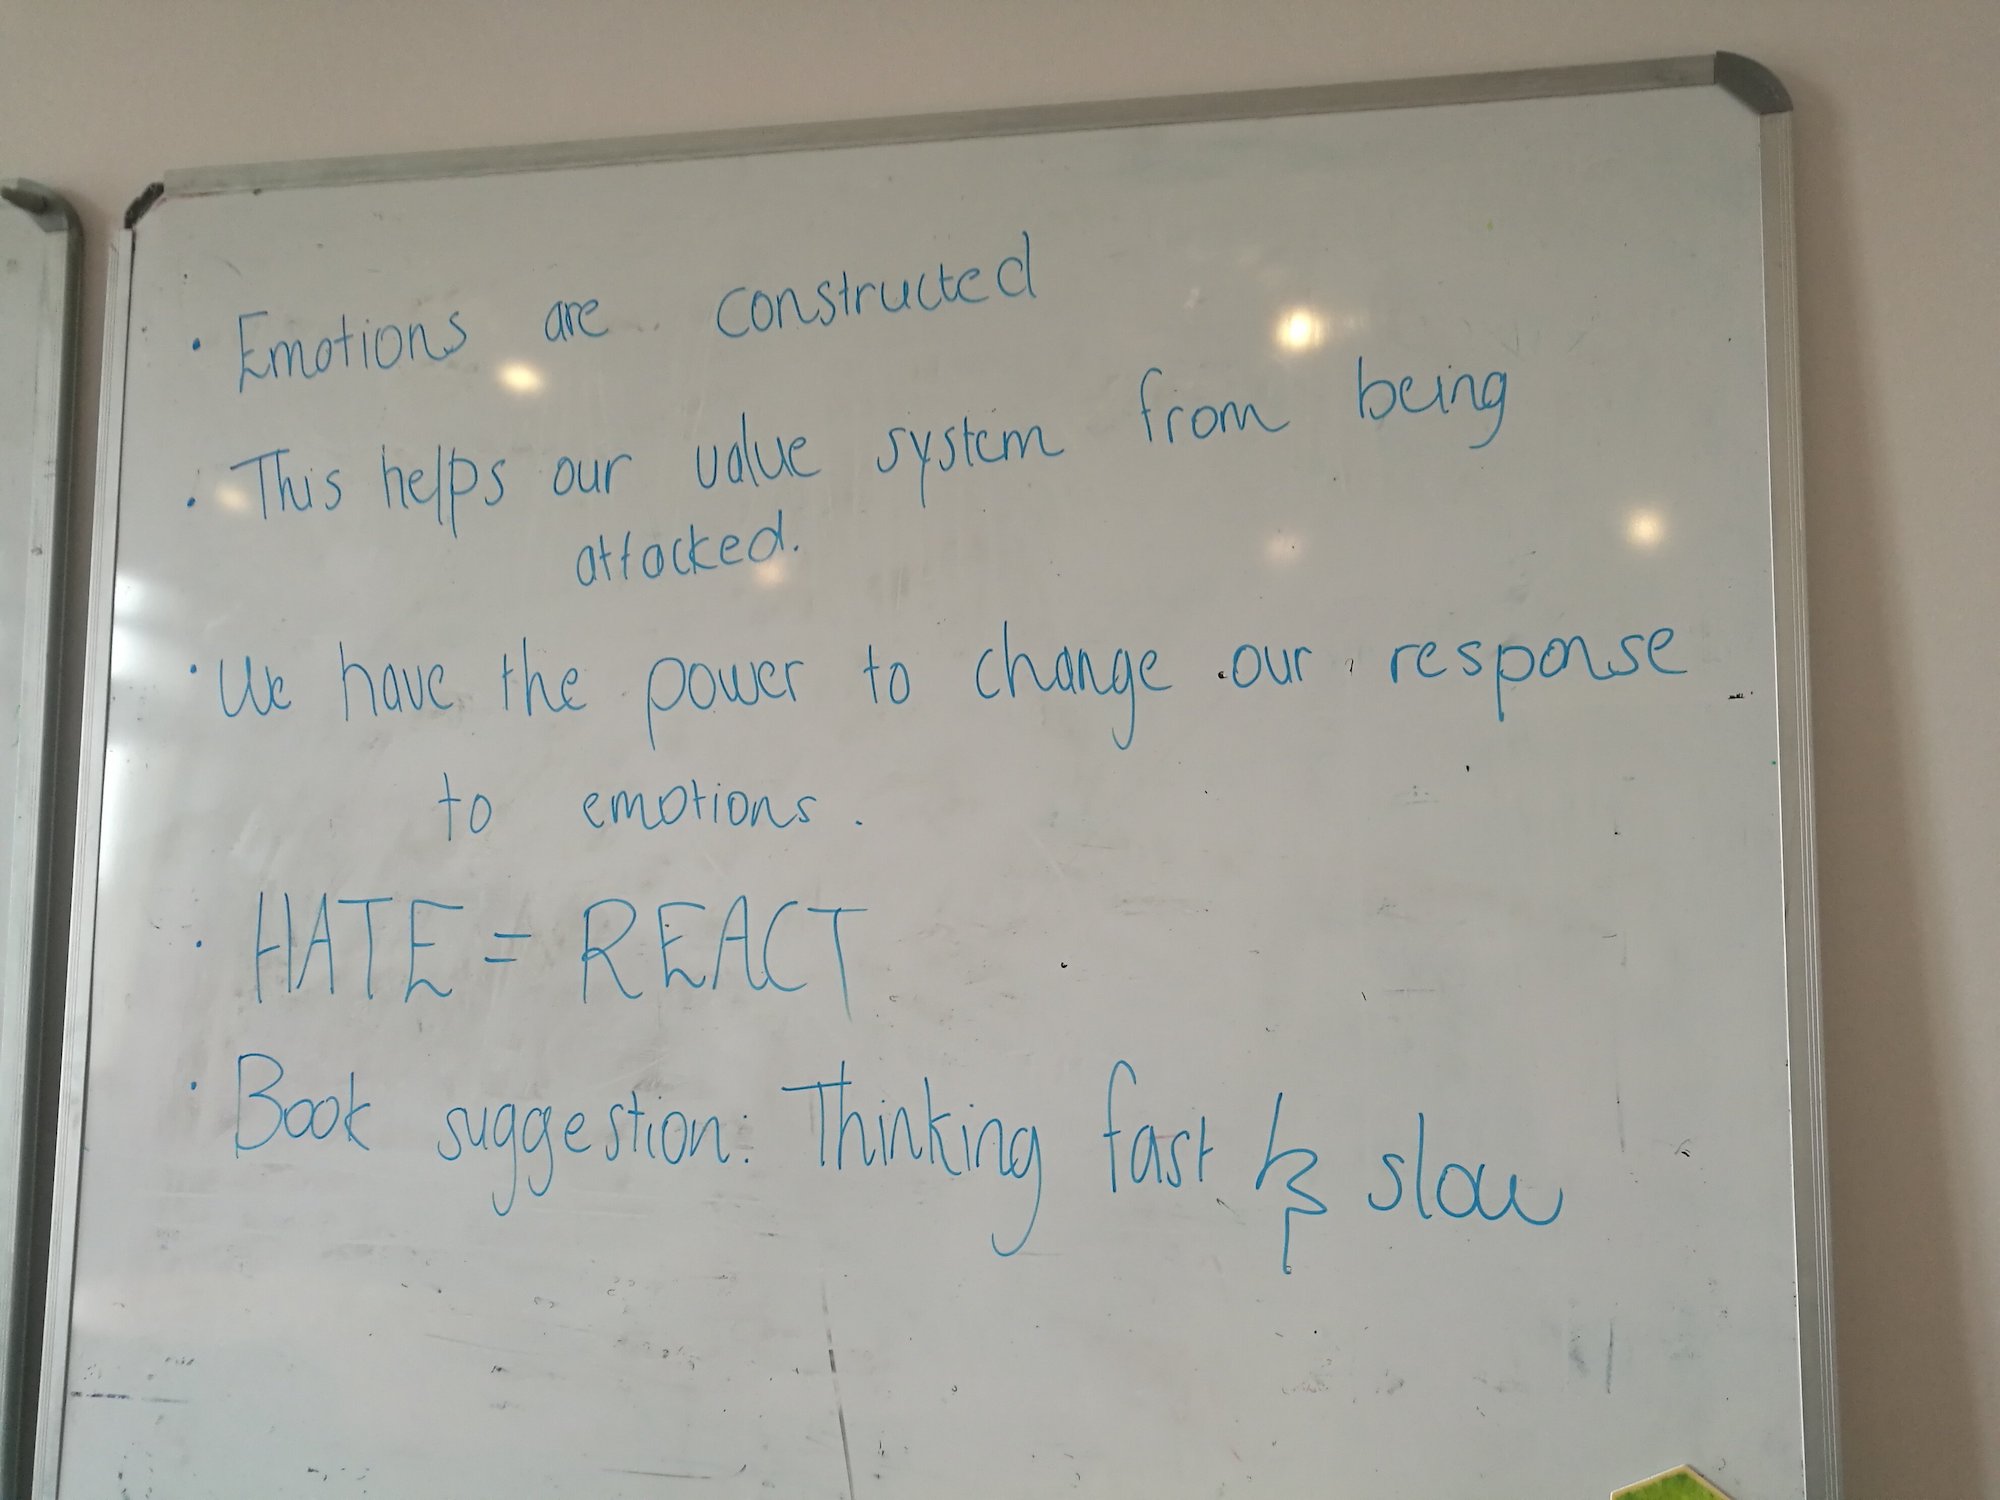 · Emotions are constructed
· This helps our value system from being
attacked.
· We have the power to change our response
to emotions.
· HATE = REACT
· Book suggestion: Thinking fast & slow